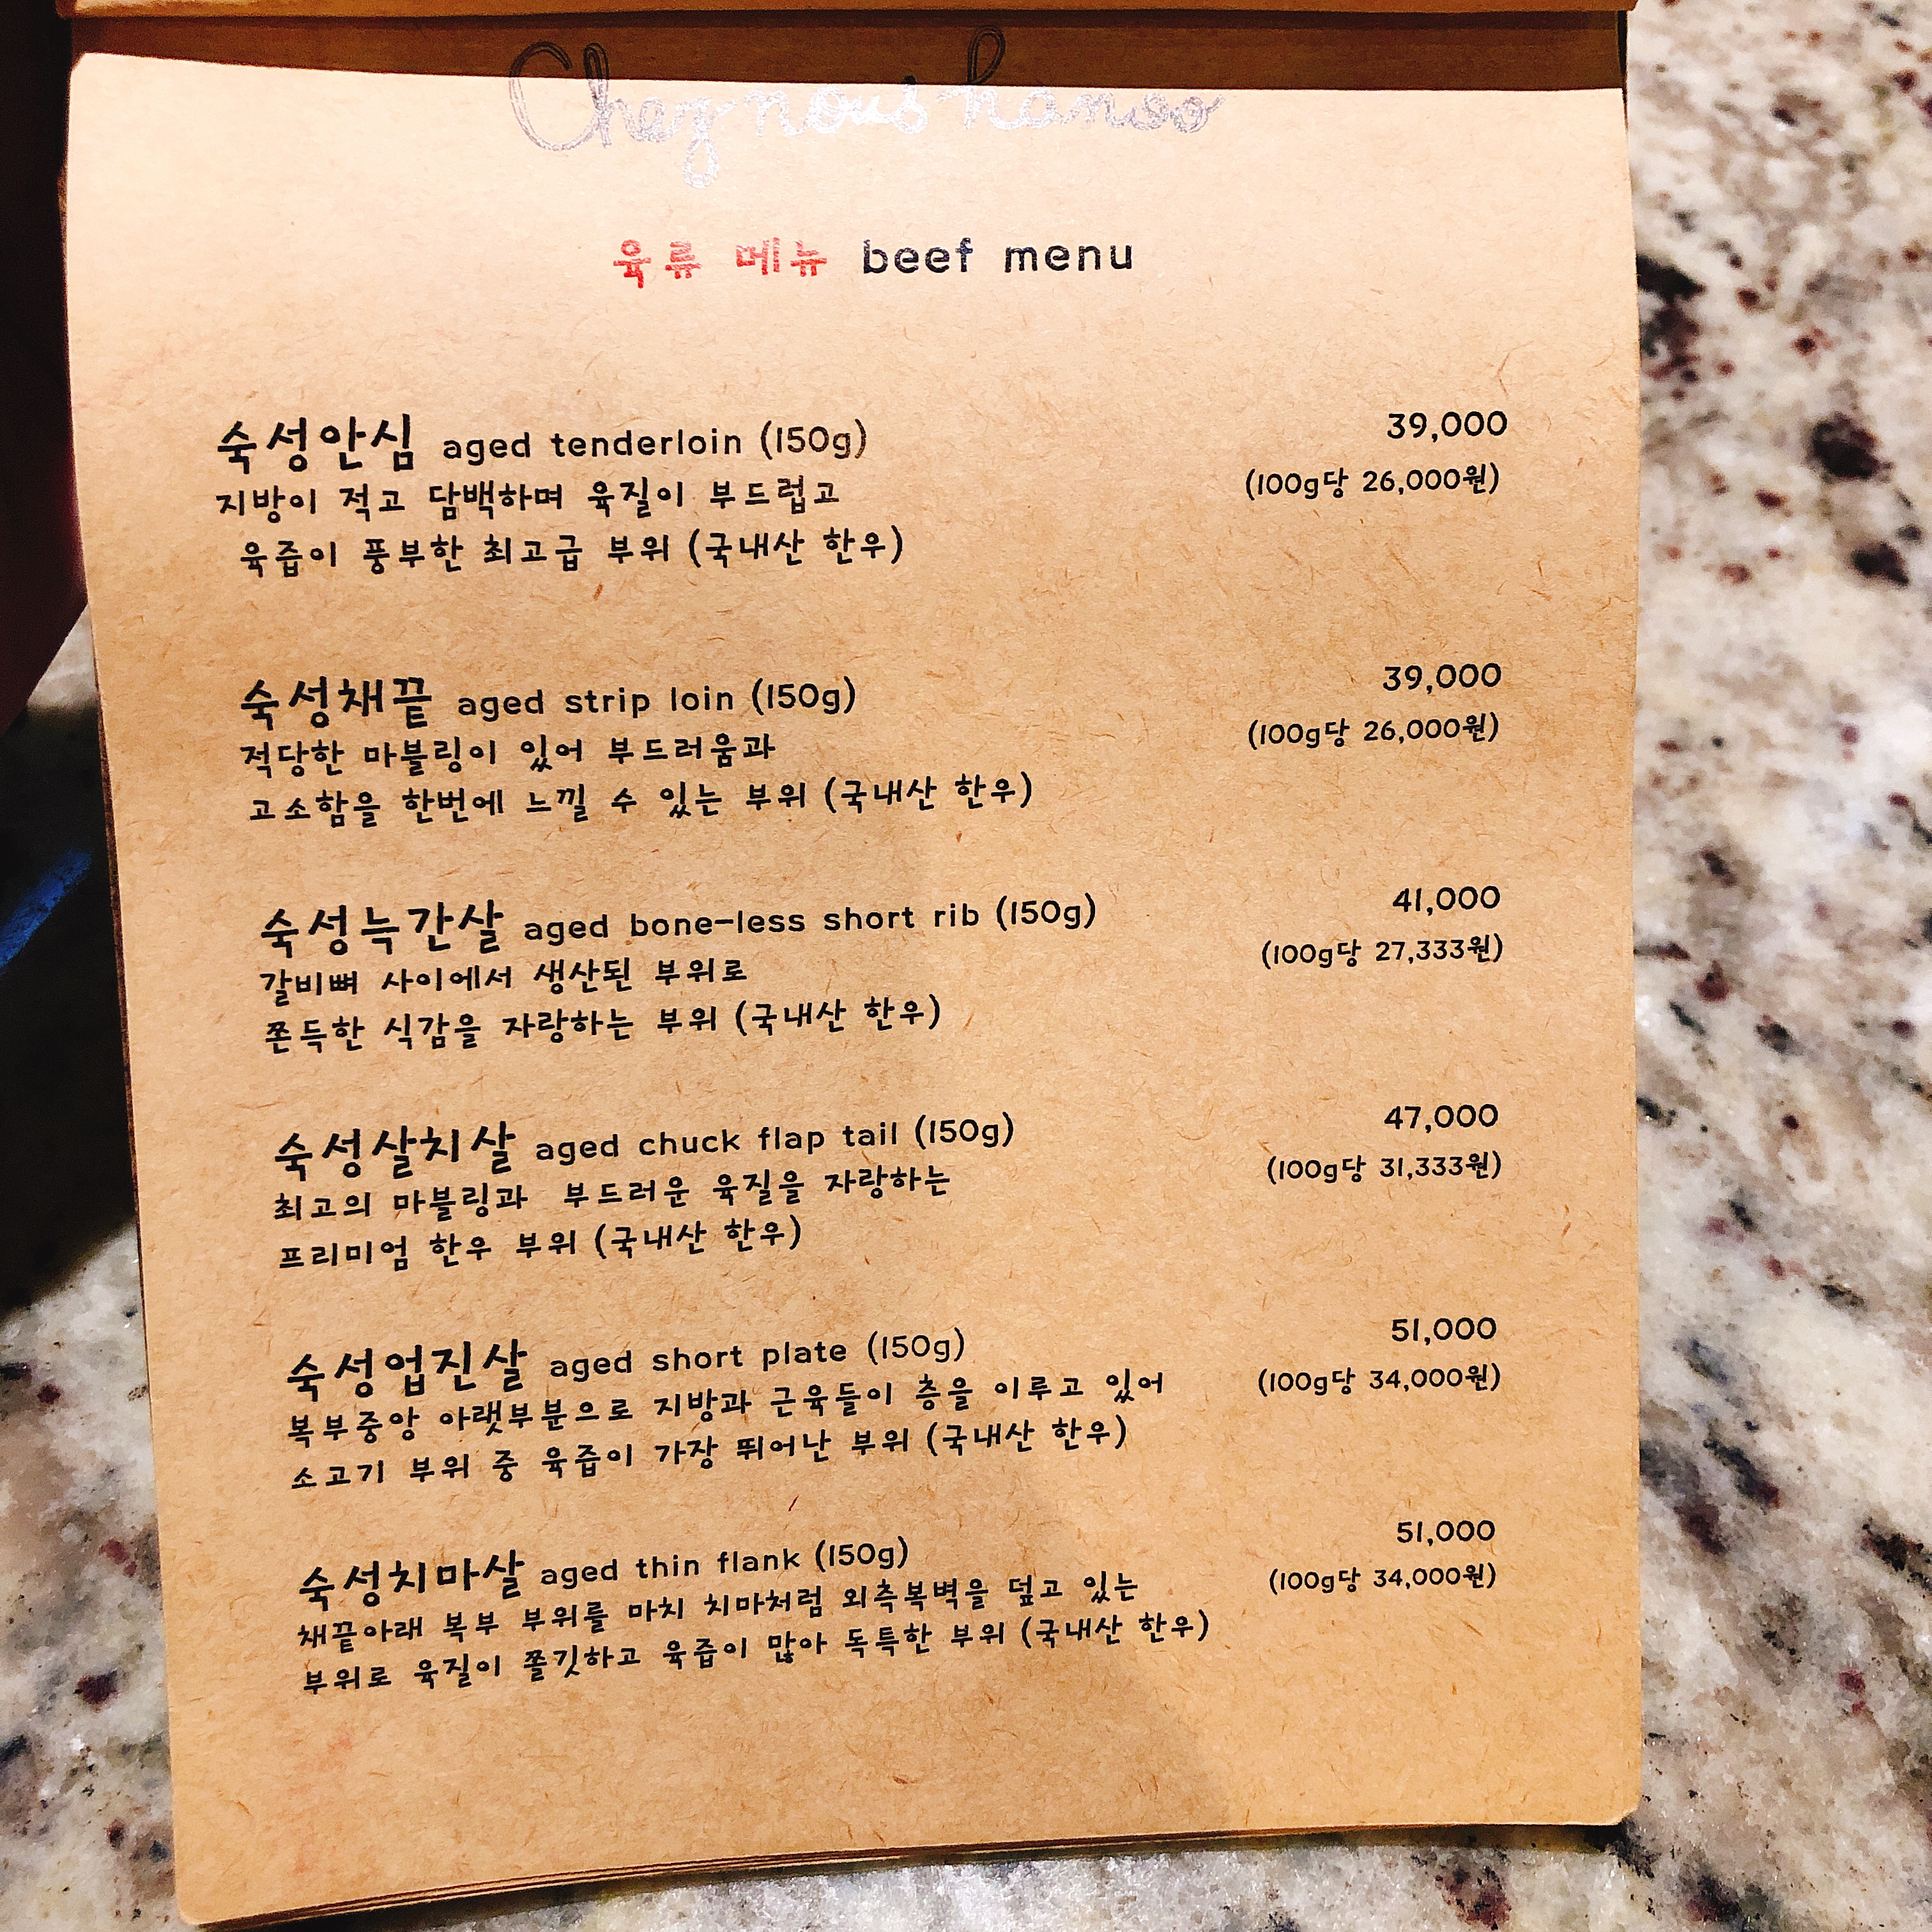 Chez nous hanoo
육류 메뉴 beef menu
숙성안심 aged tenderloin (150g) 39,000
지방이 적고 담백하며 육질이 부드럽고 (100g당 26,000원)
육즙이 풍부한 최고급 부위 (국내산 한우)
숙성채끝 aged strip loin (150g) 39,000
적당한 마블링이 있어 부드러움과 (100g당 26,000원)
고소함을 한번에 느낄 수 있는 부위 (국내산 한우)
숙성늑간살 aged bone-less short rib (150g) 41,000
갈비뼈 사이에서 생산된 부위로 (100g당 27,333원)
쫀득한 식감을 자랑하는 부위 (국내산 한우)
숙성살치살 aged chuck flap tail (150g) 47,000
최고의 마블링과 부드러운 육질을 자랑하는 (100g당 31,333원)
프리미엄 한우 부위 (국내산 한우)
숙성업진살 aged short plate (150g) 51,000
복부중앙 아랫부분으로 지방과 근육들이 층을 이루고 있어 (100g당 34,000원)
소고기 부위 중 육즙이 가장 뛰어난 부위 (국내산 한우)
숙성치마살 aged thin flank (150g) 51,000
채끝아래 복부 부위를 마치 치마처럼 외측복벽을 덮고 있는 (100g당 34,000원)
부위로 육질이 쫄깃하고 육즙이 많아 독특한 부위 (국내산 한우)